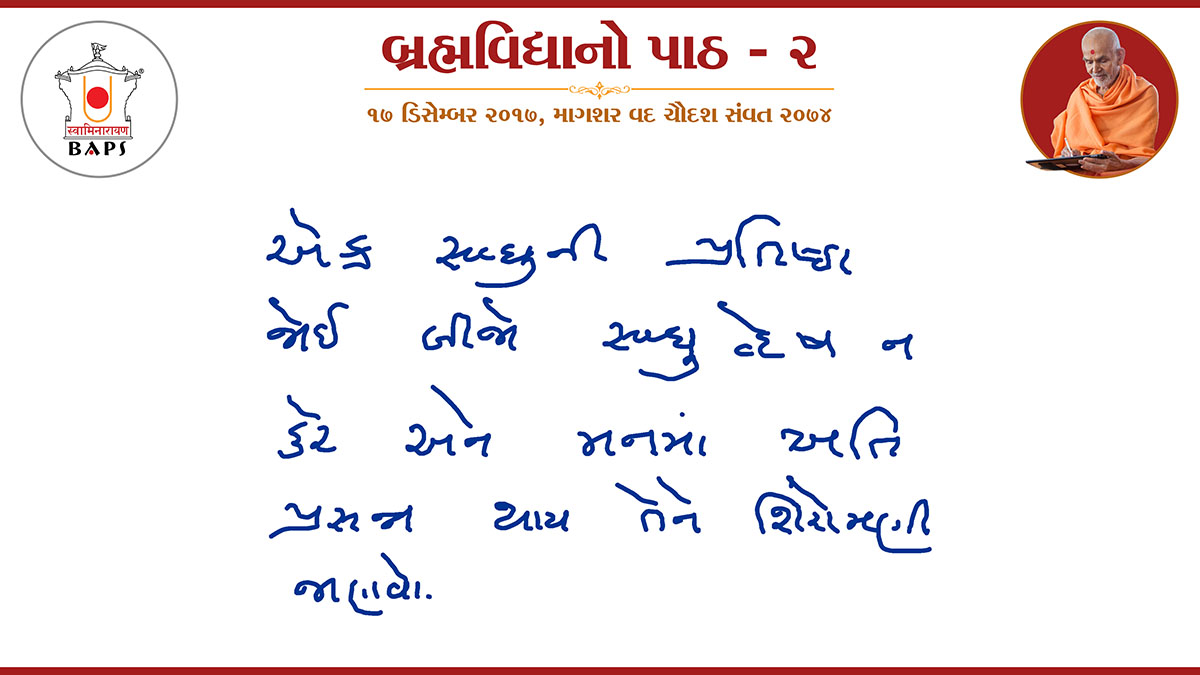 બ્રહ્મવિદ્યાનો પાઠ - ૨
૧૭ ડિસેમ્બર ૨૦૧૭, માગશર વદ ચૌદશ સંવત ૨૦૭૪
स्वामिनारायण
®
BAPS
એક સાધુની પ્રતિષ્ઠા
જોઈ બીજો સાધુ દ્વેષ ન
કરે અને મનમાં અતિ
પ્રસન્ન થાય તેને શિરોમણી
જાણવો.